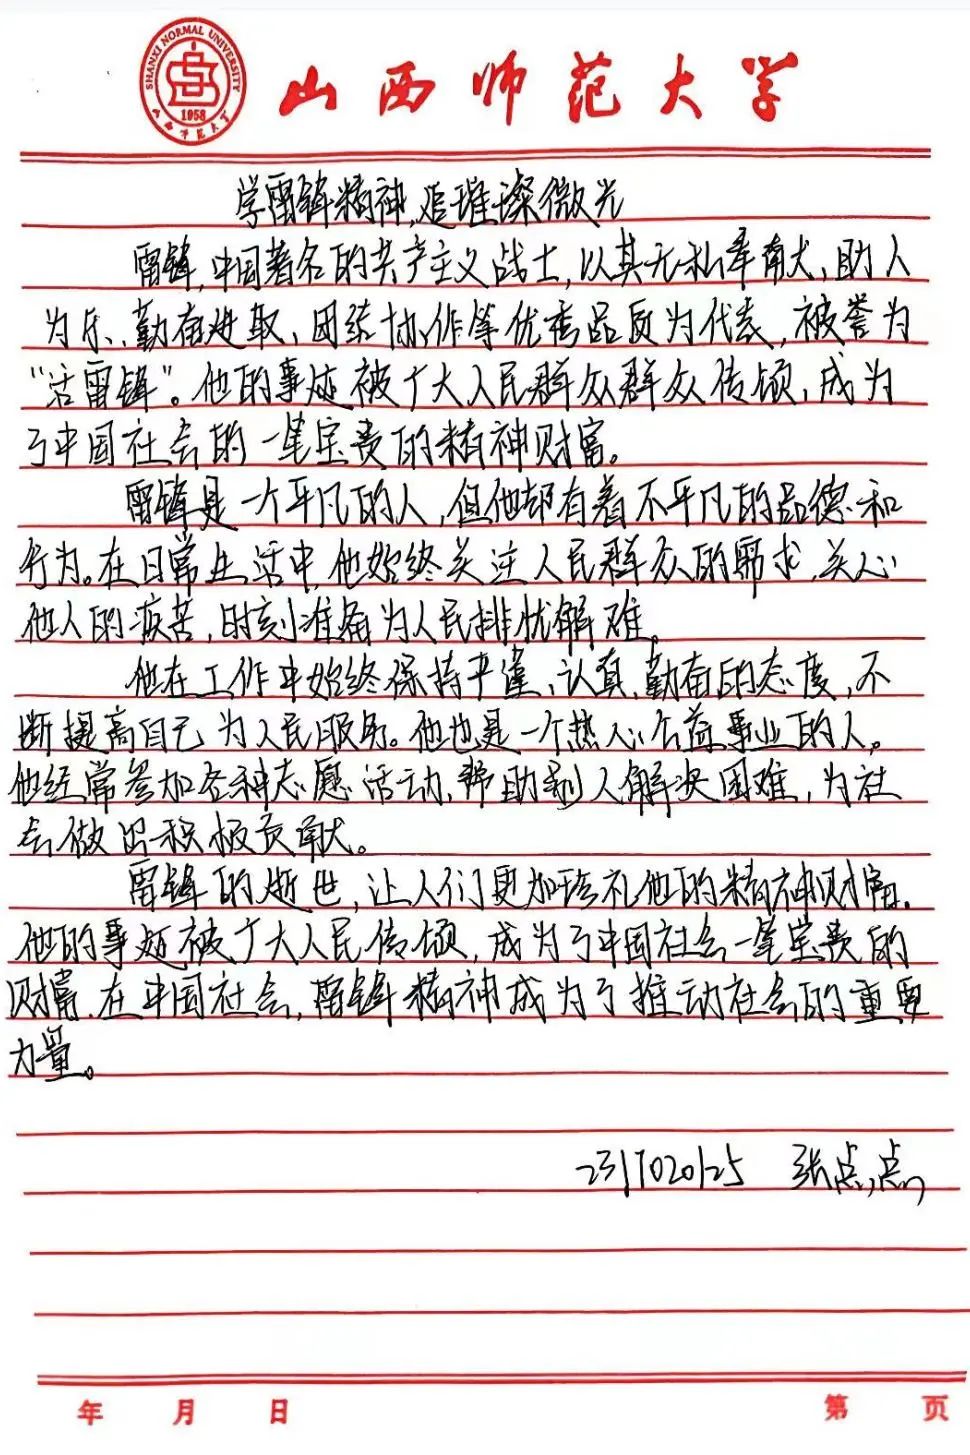 SHANXI NORMAL UNIVERSITY
1958
山西师范大学
山西师范大学
学雷锋精神,追璀璨微光
雷锋,中国著名的共产主义战士,以其无私奉献,助人
为乐、勤奋进取、团结协作等优秀品质为代表,被誉为
“活雷锋”。他的事迹被广大人民群众群众传颂,成为
了中国社会的一笔宝贵的精神财富。
雷锋是一个平凡的人,但他却有着不平凡的品德和
行为。在日常生活中,他始终关注人民群众的需求,关心
他人的疾苦,时刻准备为人民排忧解难。
他在工作中始终保持严谨、认真、勤奋的态度,不
断提高自己为人民服务。他也是一个热心公益事业的人。
他经常参加各种志愿活动,帮助别人解决困难,为社
会做出积极贡献。
雷锋的逝世,让人们更加珍礼他的精神财富。
他的事迹被广大人民传颂,成为了中国社会一笔宝贵的
财富.在中国社会,雷锋精神成为了推动社会的重要
力量。
2311020125 张点点
年 月 日 第 页